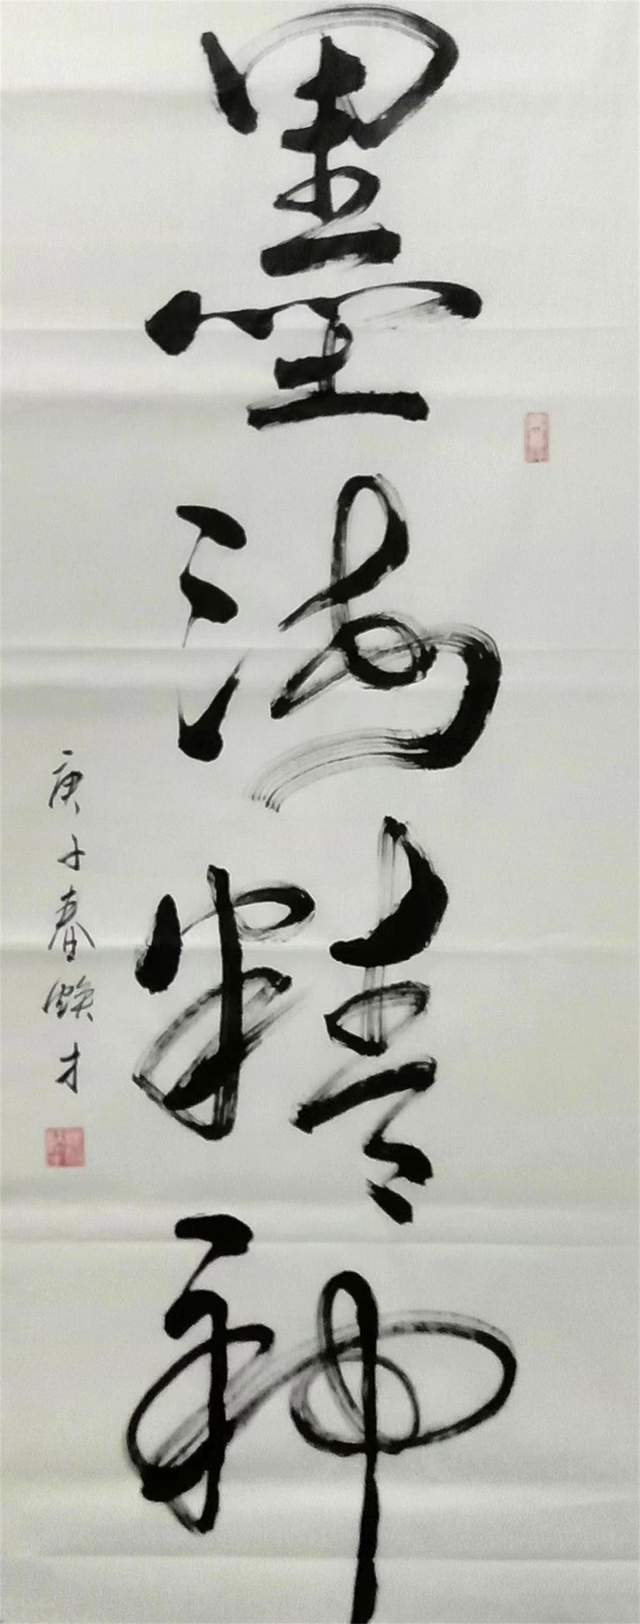 墨海精神
庚子春焕才